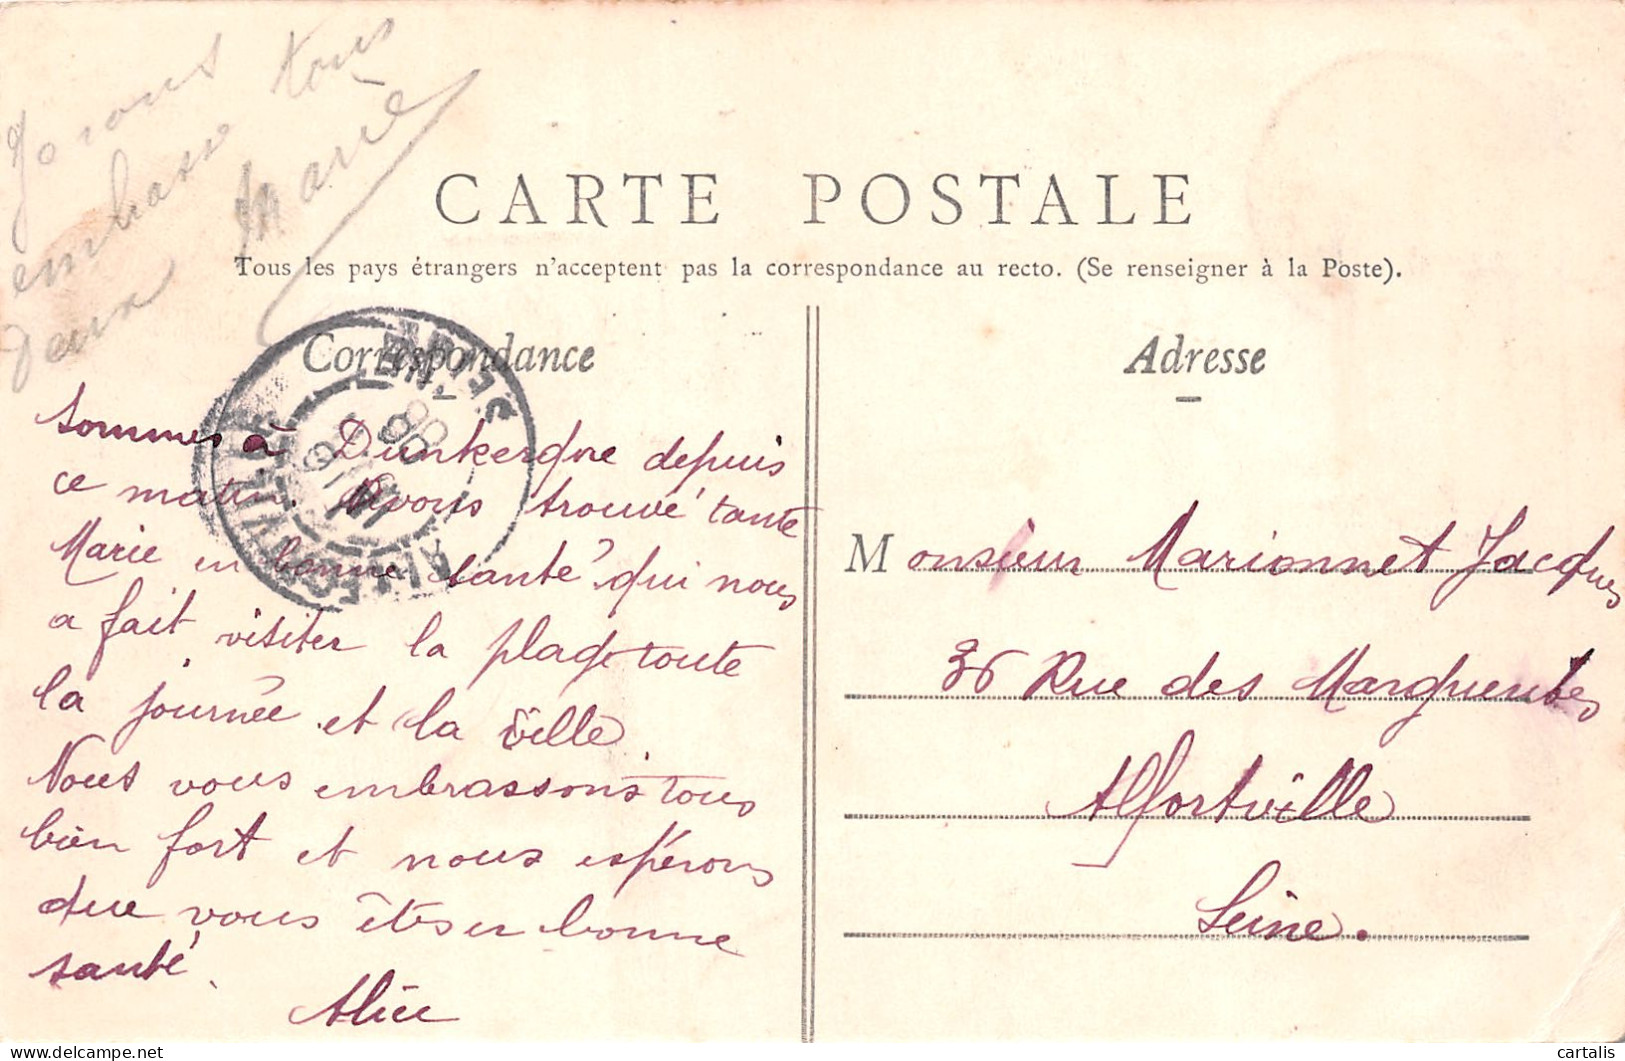 Je vous
embrasse tous
deux Marie
CARTE POSTALE
Tous les pays étrangers n'acceptent pas la correspondance au recto. (Se renseigner à la Poste).
Correspondance
Adresse
ALFORTVILLE
SEINE
sommes à Dunkerque depuis
ce matin. Avons trouvé tante
Marie en bonne santé qui nous
a fait visiter la plage toute
la journée et la ville.
Nous vous embrassons tous
bien fort et nous espérons
que vous êtes en bonne
santé.
Alice
Monsieur Marionnet Jacques
36 Rue des Marguerites
Alfortville
Seine.
delcampe.net
cartalis